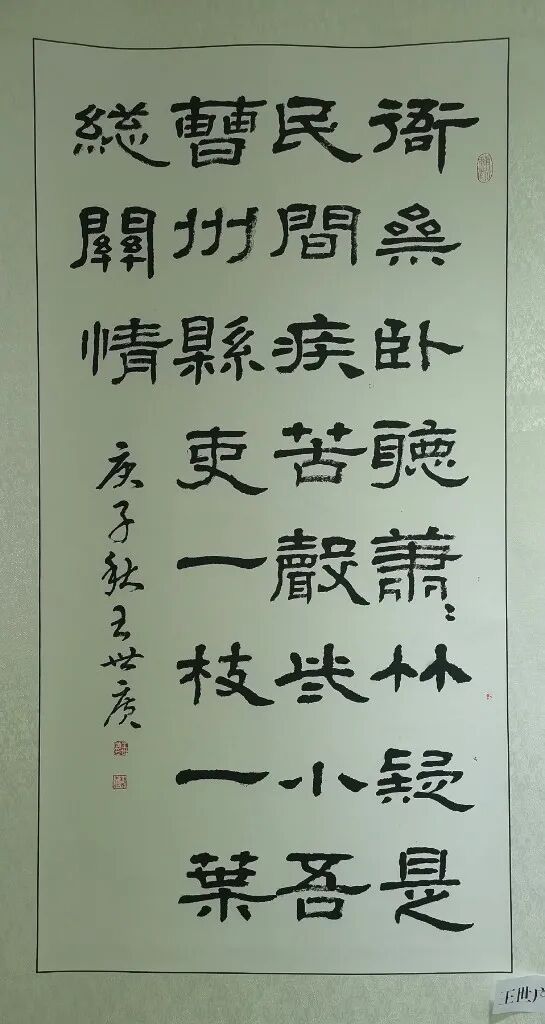 衙齋卧聽蕭〻竹疑是
民間疾苦聲些小吾
曹州縣吏一枝一葉
總關情
庚子秋王世廣
王世